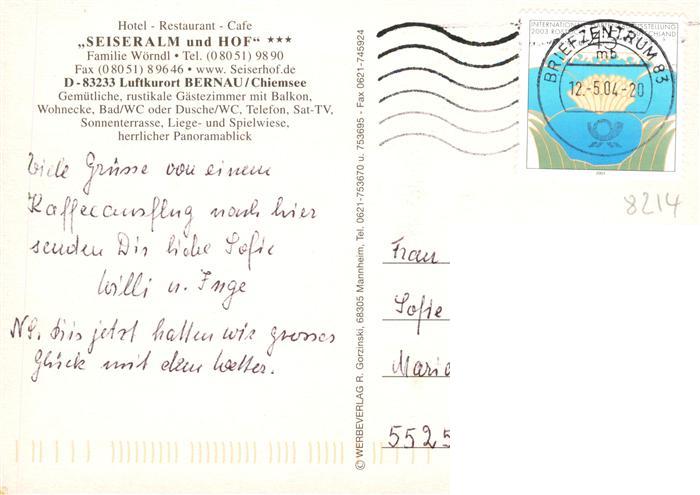 Hotel - Restaurant - Cafe
„SEISERALM und HOF" ★★★
Familie Wörndl • Tel. (0 80 51) 98 90
Fax (0 80 51) 8 96 46 • www. Seiserhof.de
D - 83233 Luftkurort BERNAU / Chiemsee
Gemütliche, rustikale Gästezimmer mit Balkon,
Wohnecke, Bad/WC oder Dusche/WC, Telefon, Sat-TV,
Sonnenterrasse, Liege- und Spielwiese,
herrlicher Panoramablick
Viele Grüsse von einem
Kaffeeausflug nach hier
senden Dir liebe Sofie
Willi u. Inge
NS. Bis jetzt hatten wir grosses
Glück mit dem Wetter.
© WERBEVERLAG R. Gorzinski, 68305 Mannheim, Tel. 0621-753670 u. 753695 - Fax 0621-745924
INTERNATIONALE AUSSTELLUNG
2003 ROSTOCK DEUTSCHLAND
BRIEFZENTRUM 83
mb
12.-5.04-20
2003
8214
Frau
Sofie
Marie
5525